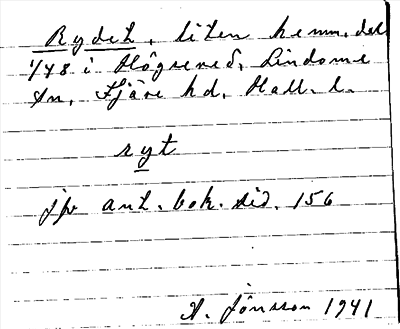 Rydet, liten hemm. del
1/48 i Högsered, Lindome
sn, Fjäre hd, Hall. l.
ryt
jfr ant. bok. sid. 156
A. Jönsson 1941